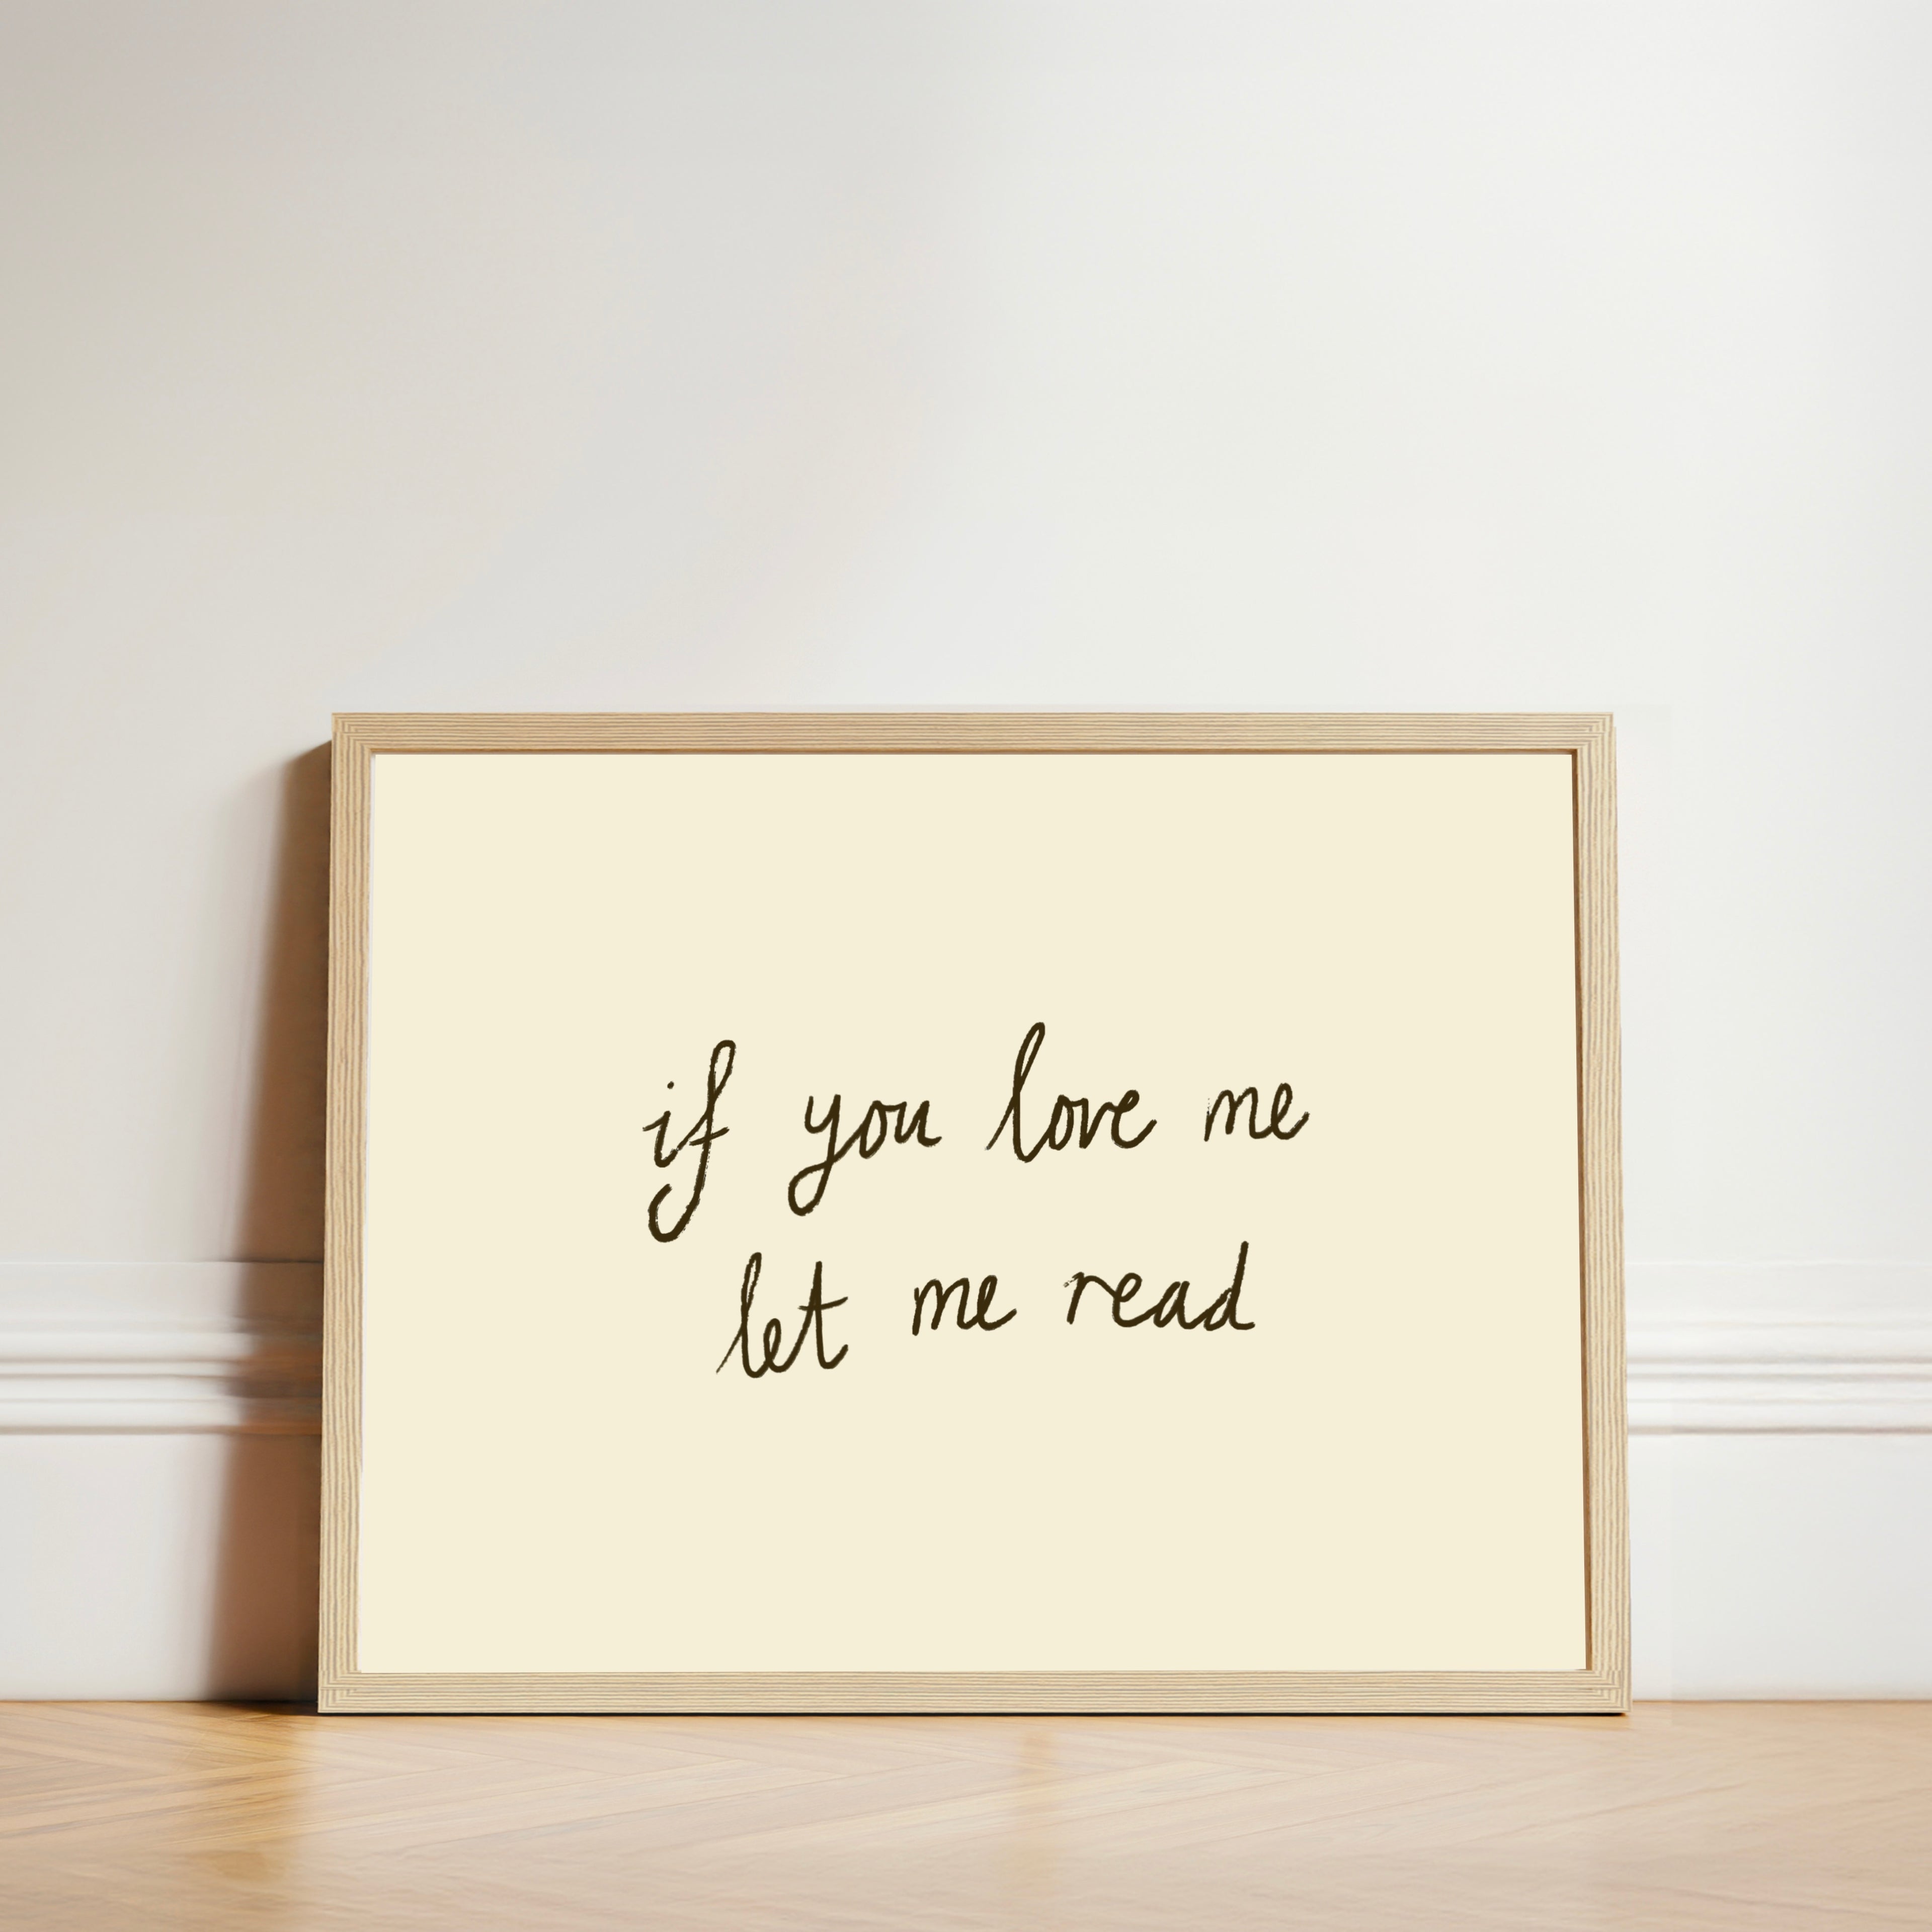 if you love me
let me read